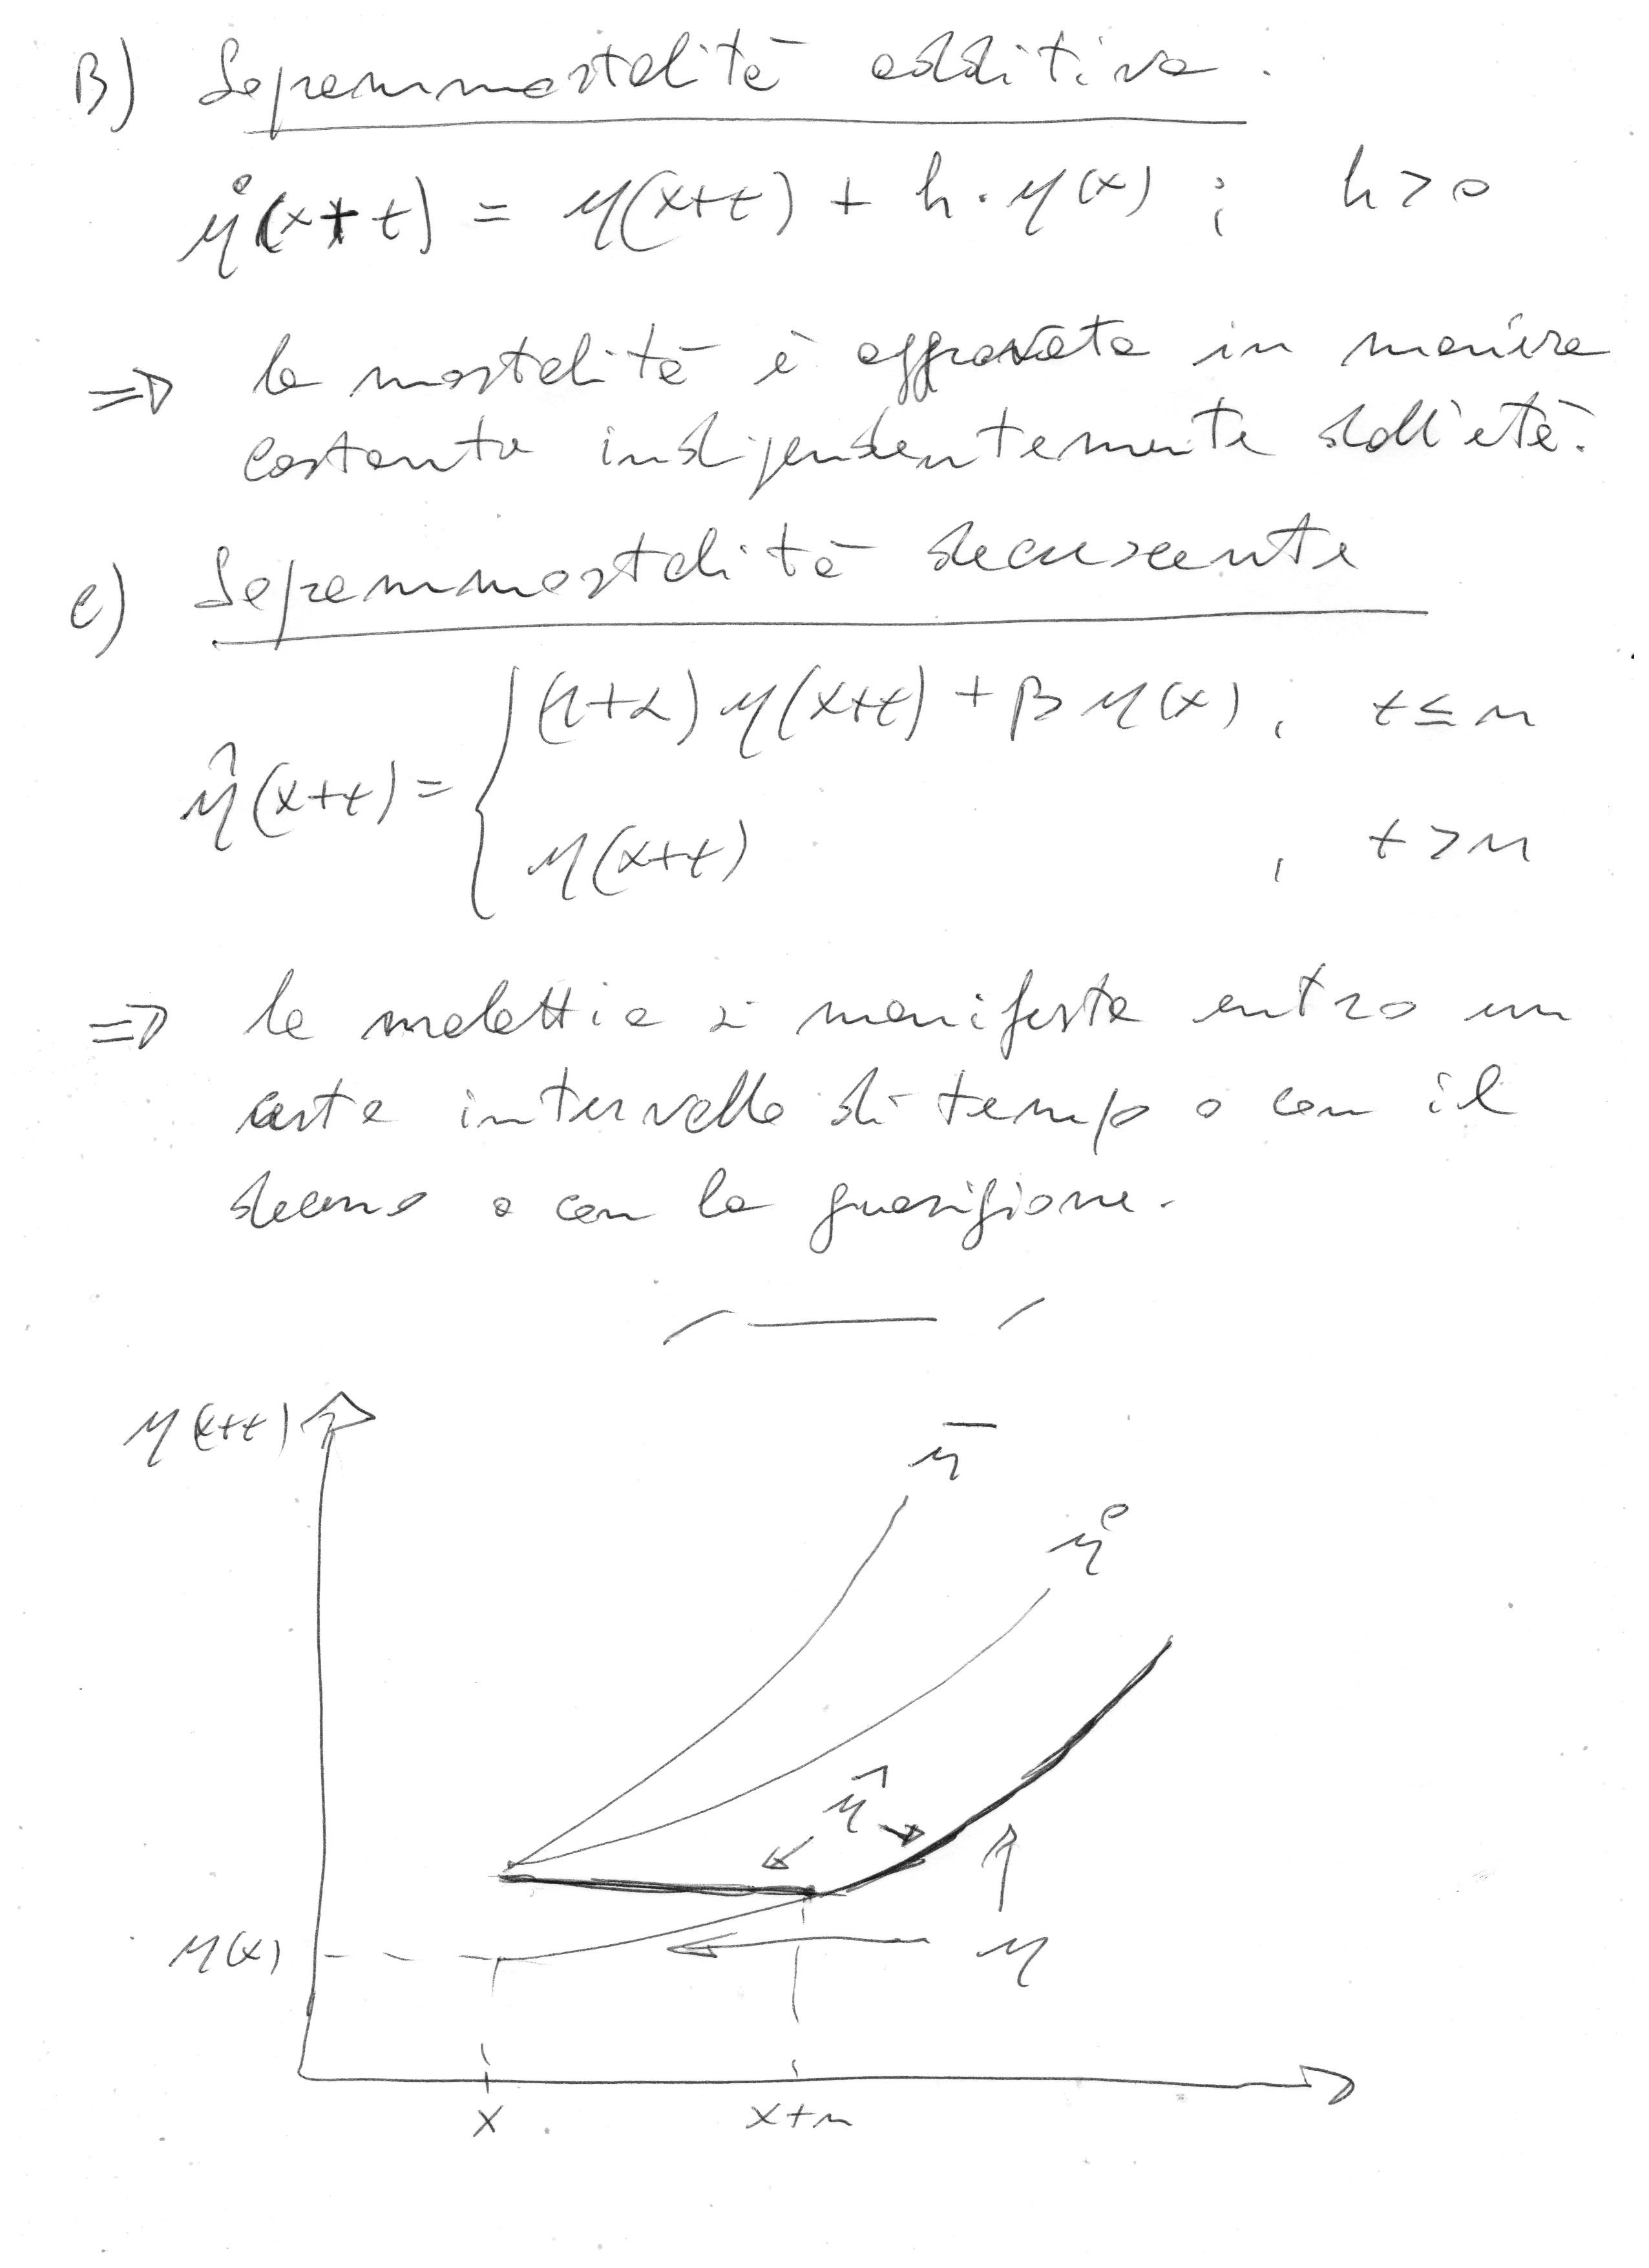 B) Sopramortalità additiva.
μ̊(x+t) = μ(x+t) + h·μ(x) ; h>0
⇒ la mortalità è aggravata in maniera
costante indipendentemente dall'età.
C) Sopramortalità decrescente
μ̂(x+t) = { (1+α) μ(x+t) + β μ(x), t≤n
μ(x+t) , t>n
⇒ la malattia si manifesta entro un
certo intervallo di tempo o con il
decesso o con la guarigione.
μ(x+t)
μ̄
μ̊
μ̂
μ(x)
μ
x x+n